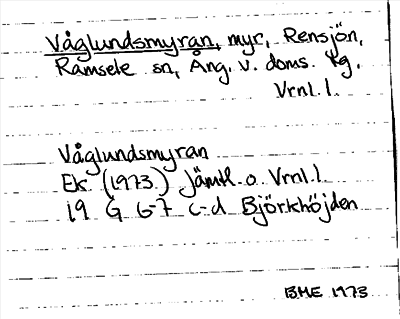 Våglundsmyran, myr, Rensjön,
Ramsele sn, Ång. v. doms. kg.
Vrnl. l.
Våglundsmyran
Ek. (1973) Jämtl o Vrnl. l.
19 G 6-7 c-d Björkhöjden
BME 1973